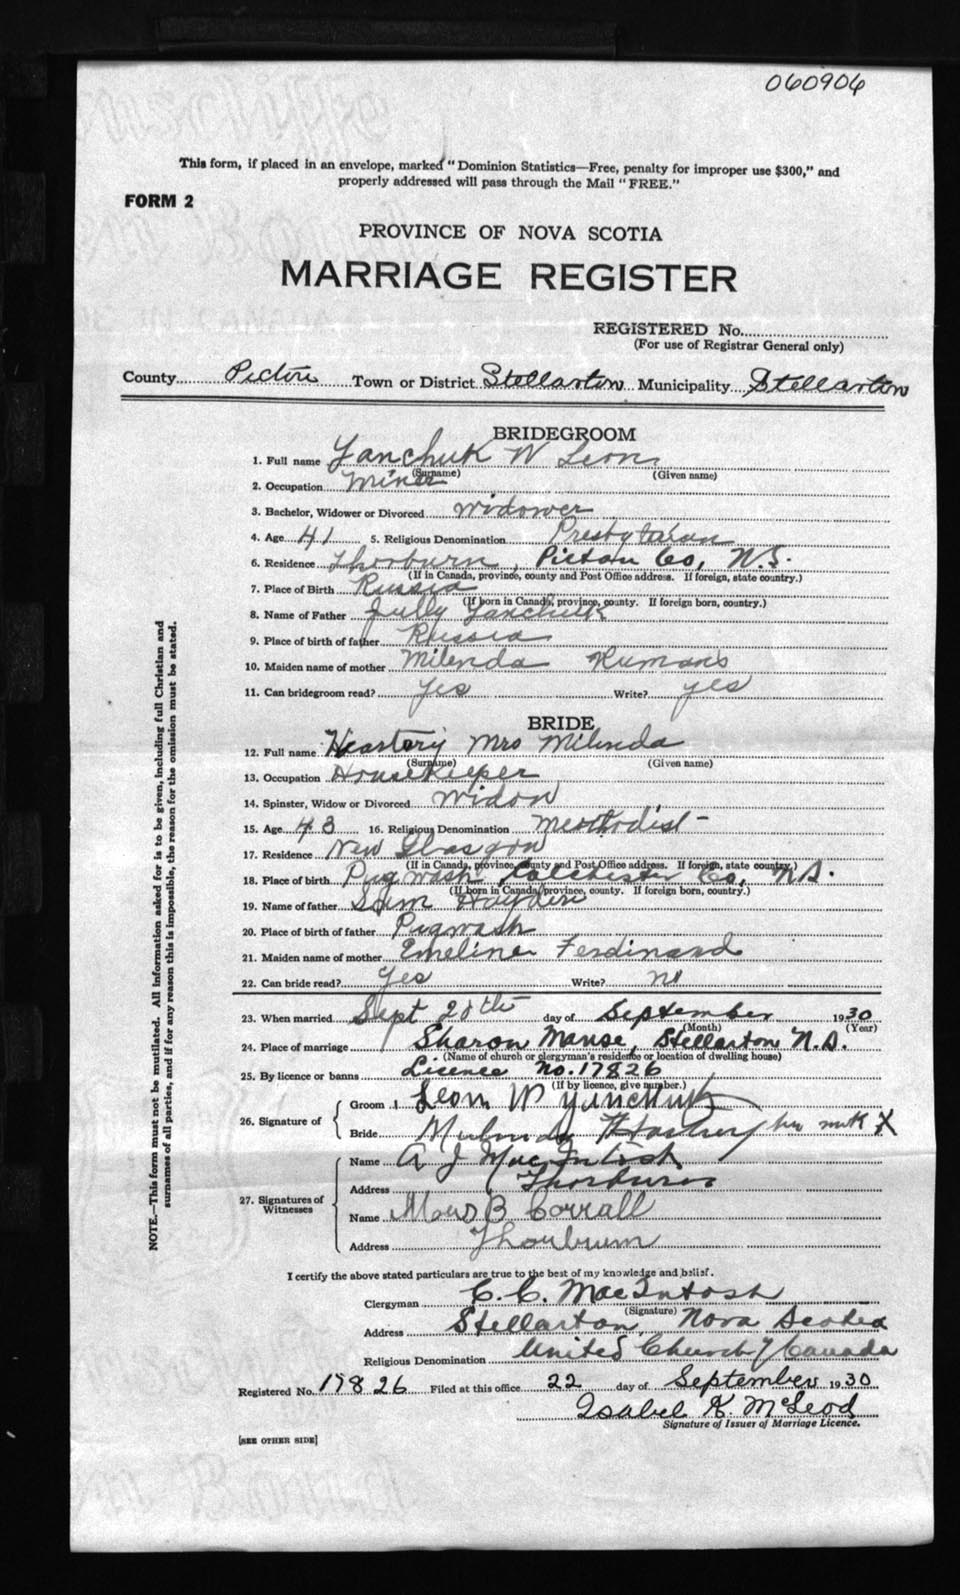 060906
This form, if placed in an envelope, marked "Dominion Statistics—Free, penalty for improper use $300," and
properly addressed will pass through the Mail "FREE."
FORM 2
PROVINCE OF NOVA SCOTIA
MARRIAGE REGISTER
REGISTERED No.
(For use of Registrar General only)
County Pictou Town or District Stellarton Municipality Stellarton
BRIDEGROOM
1. Full name Yanchuk W Leon
(Surname) (Given name)
2. Occupation Miner
3. Bachelor, Widower or Divorced widower
4. Age 41 5. Religious Denomination
6. Residence Thorburn, Pictou Co, N.S.
(If in Canada, province, county and Post Office address. If foreign, state country.)
7. Place of Birth Russia
(If born in Canada, province, county. If foreign born, country.)
8. Name of Father Yanchuk
9. Place of birth of father Russia
10. Maiden name of mother Milenda
11. Can bridegroom read? yes Write? yes
BRIDE
12. Full name Mrs Milinda
(Surname) (Given name)
13. Occupation Housekeeper
14. Spinster, Widow or Divorced widow
15. Age 43 16. Religious Denomination
17. Residence New Glasgow
(If in Canada, province, county and Post Office address. If foreign, state country.)
18. Place of birth Pugwash Colchester Co, N.S.
(If born in Canada, province, county. If foreign born, country.)
19. Name of father Sam Hayden
20. Place of birth of father Pugwash
21. Maiden name of mother Emeline Ferdinand
22. Can bride read? yes Write? no
23. When married Sept 20th day of September 1930
(Month) (Year)
24. Place of marriage Sharon Manse, Stellarton N.S.
(Name of church or clergyman's residence or location of dwelling house)
25. By licence or banns Licence No. 17826
(If by licence, give number.)
26. Signature of
Groom Leon W Yanchuk
Bride her mark X
27. Signatures of Witnesses
Name A J MacIntosh
Address Thorburn
Name B Corrall
Address Thorburn
I certify the above stated particulars are true to the best of my knowledge and belief.
Clergyman C. C. MacIntosh
(Signature)
Address Stellarton, Nova Scotia
Religious Denomination United Church of Canada
Registered No. 17826 Filed at this office 22 day of September 1930
Isabel K. McLeod
Signature of Issuer of Marriage Licence.
[SEE OTHER SIDE]
NOTE.—This form must not be mutilated. All information asked for is to be given, including full Christian and
surnames of all parties, and if for any reason this is impossible, the reason for the omission must be stated.